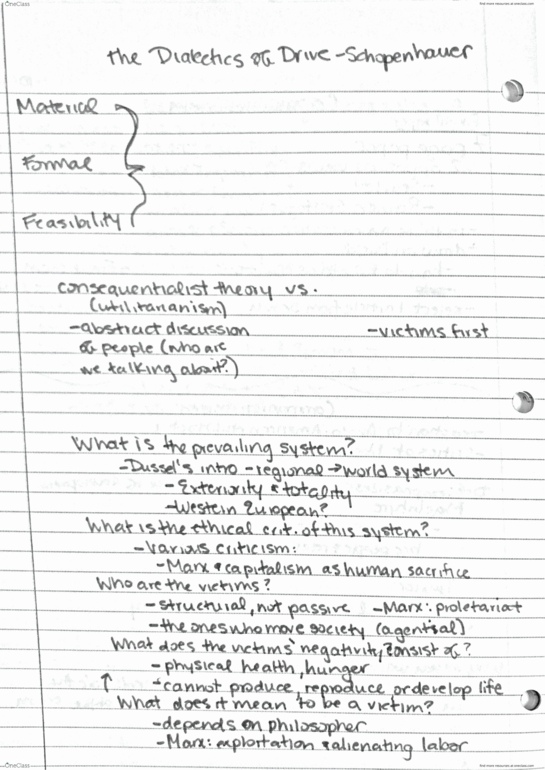 OneClass
find more resources at oneclass.com
the Dialectics of Drive - Schopenhauer
Material
Formal
Feasibility
consequentialist theory vs.
(utilitarianism)
- abstract discussion - victims first
of people (who are
we talking about?)
What is the prevailing system?
- Dussel's intro - regional → world system
- Exteriority & totality
- Western European?
What is the ethical crit. of this system?
- Various criticism:
- Marx & capitalism as human sacrifice
Who are the victims?
- structural, not passive - Marx: proletariat
- the ones who move society (agential)
What does the victims' negativity consist of?
- physical health, hunger
↑ - cannot produce, reproduce or develop life
What does it mean to be a victim?
- depends on philosopher
- Marx: exploitation & alienating labor
OneClass
find more resources at oneclass.com